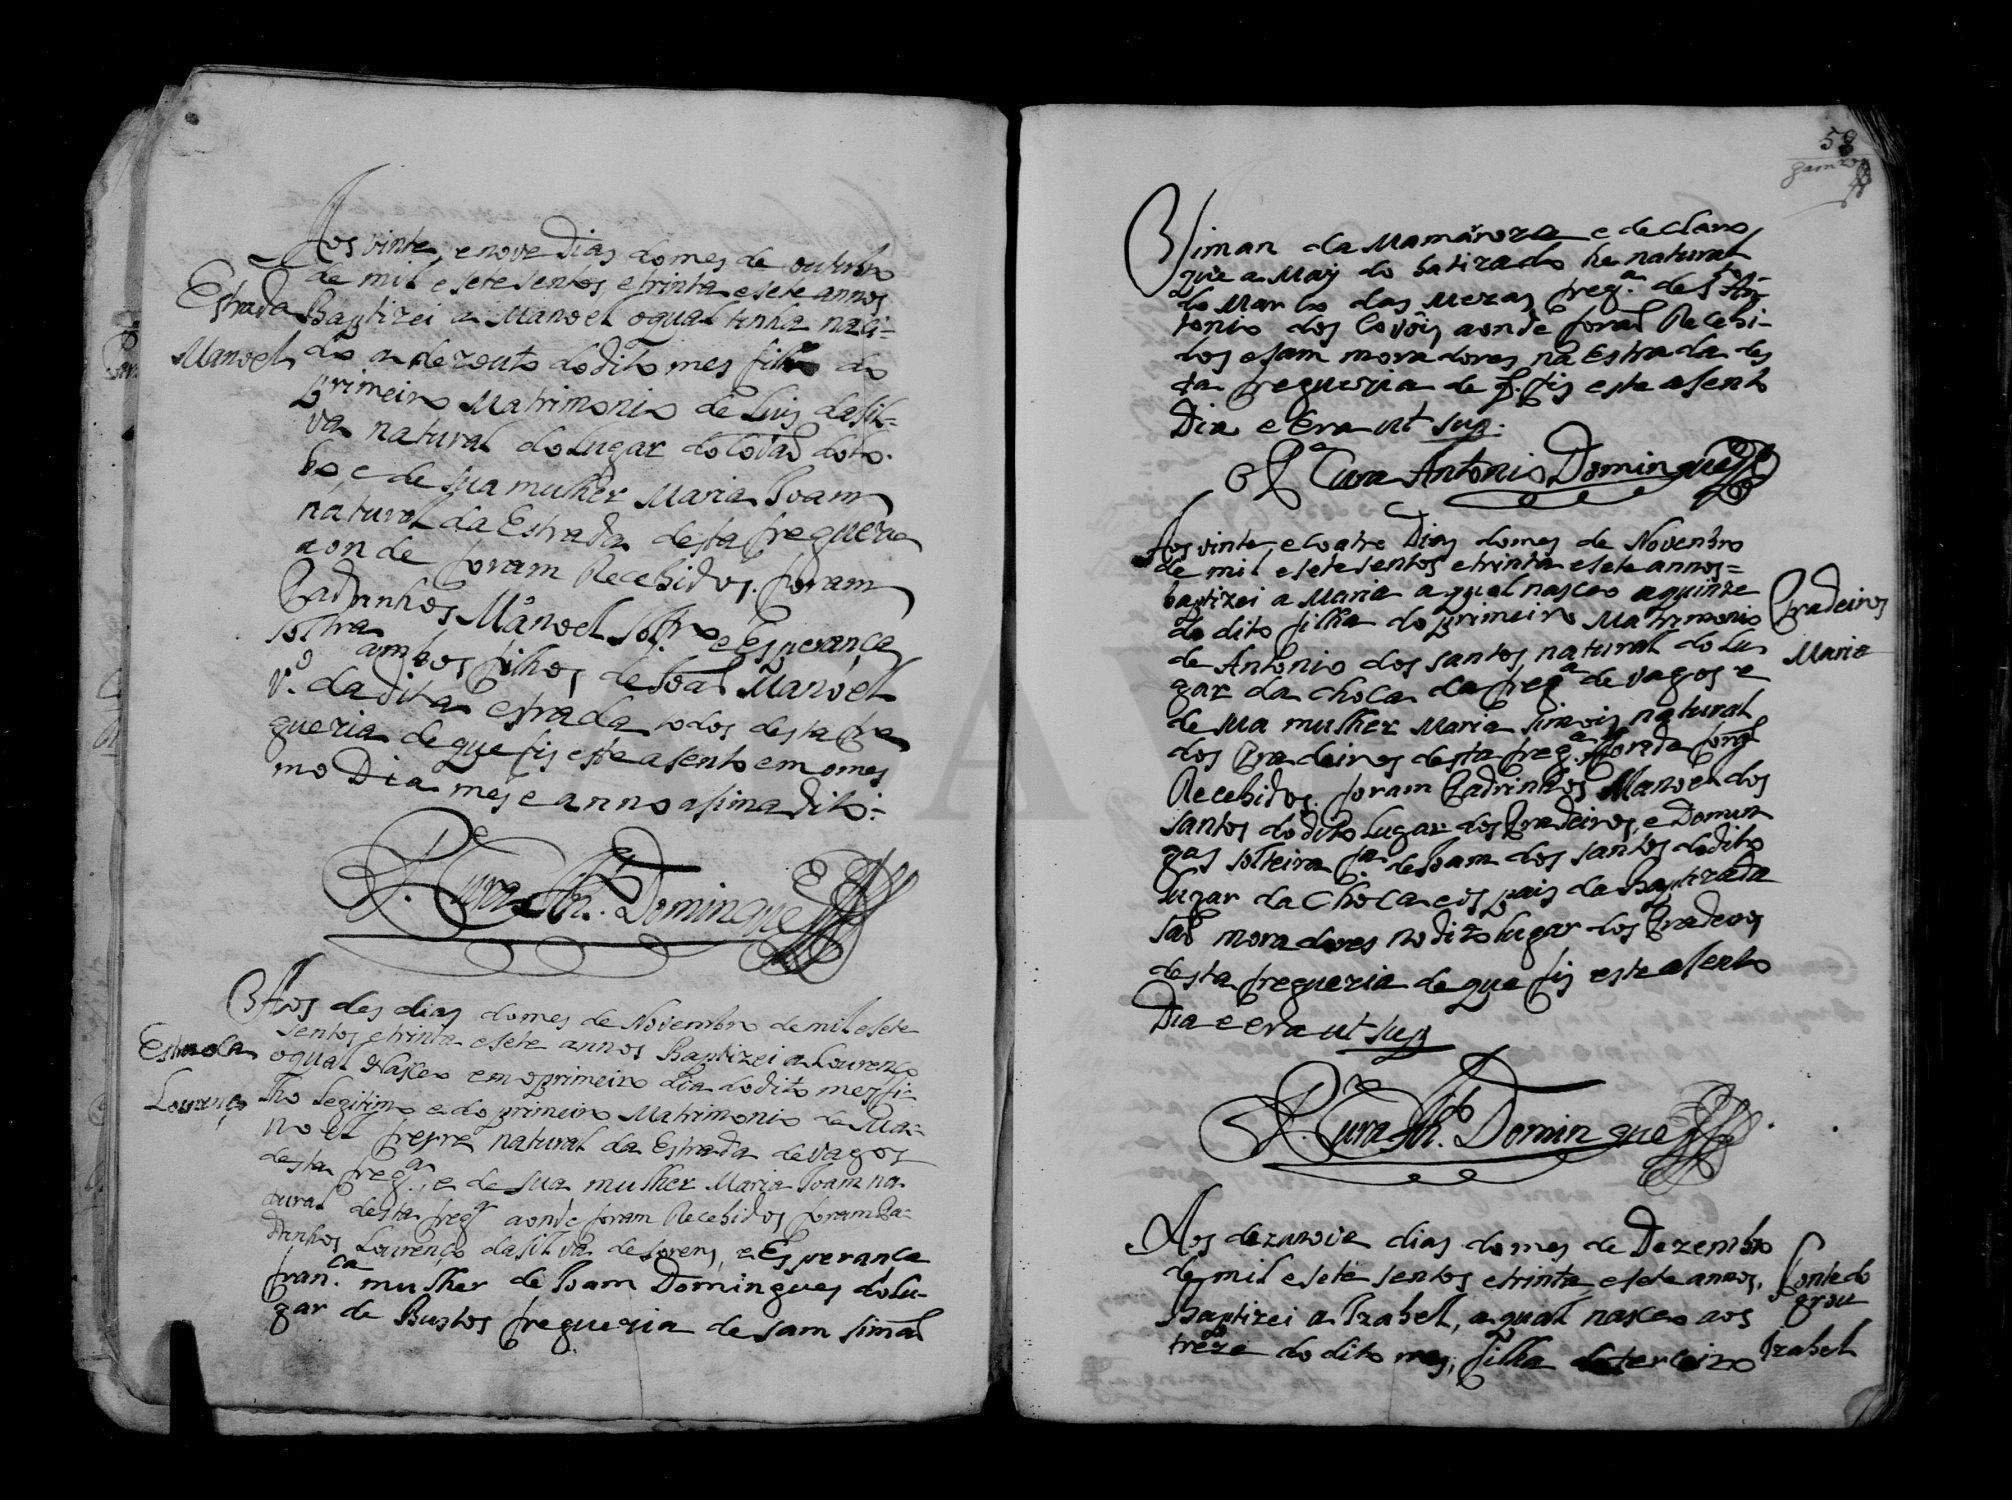 Aos vinte, e nove Dias do mes de outubro
de mil e sete sentos, e trinta e sete annos
Estrada
Baptizei a Manoel oqual tinha naci=
Manoel
do a dezouto do dito mes filho do
primeiro Matrimonio de Luis dasil=
va natural do lugar do Covão do lo.
bo, e de sua mulher Maria Joam
natural da Estrada desta freguezia
aonde foram Recebidos. foram
Padrinhos Manoel soltro e Esperança
soltra ambos filhos de Joaõ Manoel
v.º da dita estrada todos desta fre
gueria de que fis este asento em o mes
mo Dia mes e anno asima dito:
P. Cura Ant.º Domingues
Aos des dias do mes de Novembro de mil e sete
sentos e trinta e sete annos Baptizei a Lourenço
Estrada
oqual Nasceo em o primeiro dia do dito mes fi=
Lourenço
lho Legitimo e do primeiro Matrimonio de Ma=
noel freire natural da Estrada de vagos
desta freg.ª, e de sua mulher Maria Joam na
tural desta freg.ª aonde foram Recebidos foram Pa=
drinhos Lourenço da silva de sorens, e Esperança
fran.ca mulher de Joam Domingues do lu-
gar de Bustos fregueria de sam simaõ
58
Siman da Mamaroza e declaro
que a May do batizado he natural
do Marco das Mezas freg.ª de S. An-
tonio dos Covois aonde foraõ Recebi-
dos e sam moradores na Estrada des
ta fregueria de q. fis este asento
Dia e Era ut sup.
O P.e Cura Antonio Domingues
Aos vinte e coatro Dias do mes de Novembro
de mil e sete sentos e trinta e sete annos=
baptizei a Maria a qual nasceo a quinze
Pradeiros
do dito filha do primeiro Matrimonio
Maria
de Antonio dos santos, natural do lu
gar da choca da freg.ª de vagos e
de sua mulher Maria simois natural
dos Pradeiros desta freg.ª donde foraõ
Recebidos. foram Padrinhos Manoel dos
santos do dito lugar dos Pradeiros, e Domin
gas solteira f.ª de Joam dos santos do dito
lugar da Choca e os pais da Baptizada
saõ moradores no dito lugar dos Pradeiros
desta fregueria de que fis este asento
Dia e era ut sup
P. Cura Ant.º Domingues
Aos dezanove dias do mes de Dezembro
de mil e sete sentos e trinta e sete annos,
Fonte do
grou
Baptizei a Izabel, a qual nasceo aos
treze do dito mes, filha do terceiro
Izabel